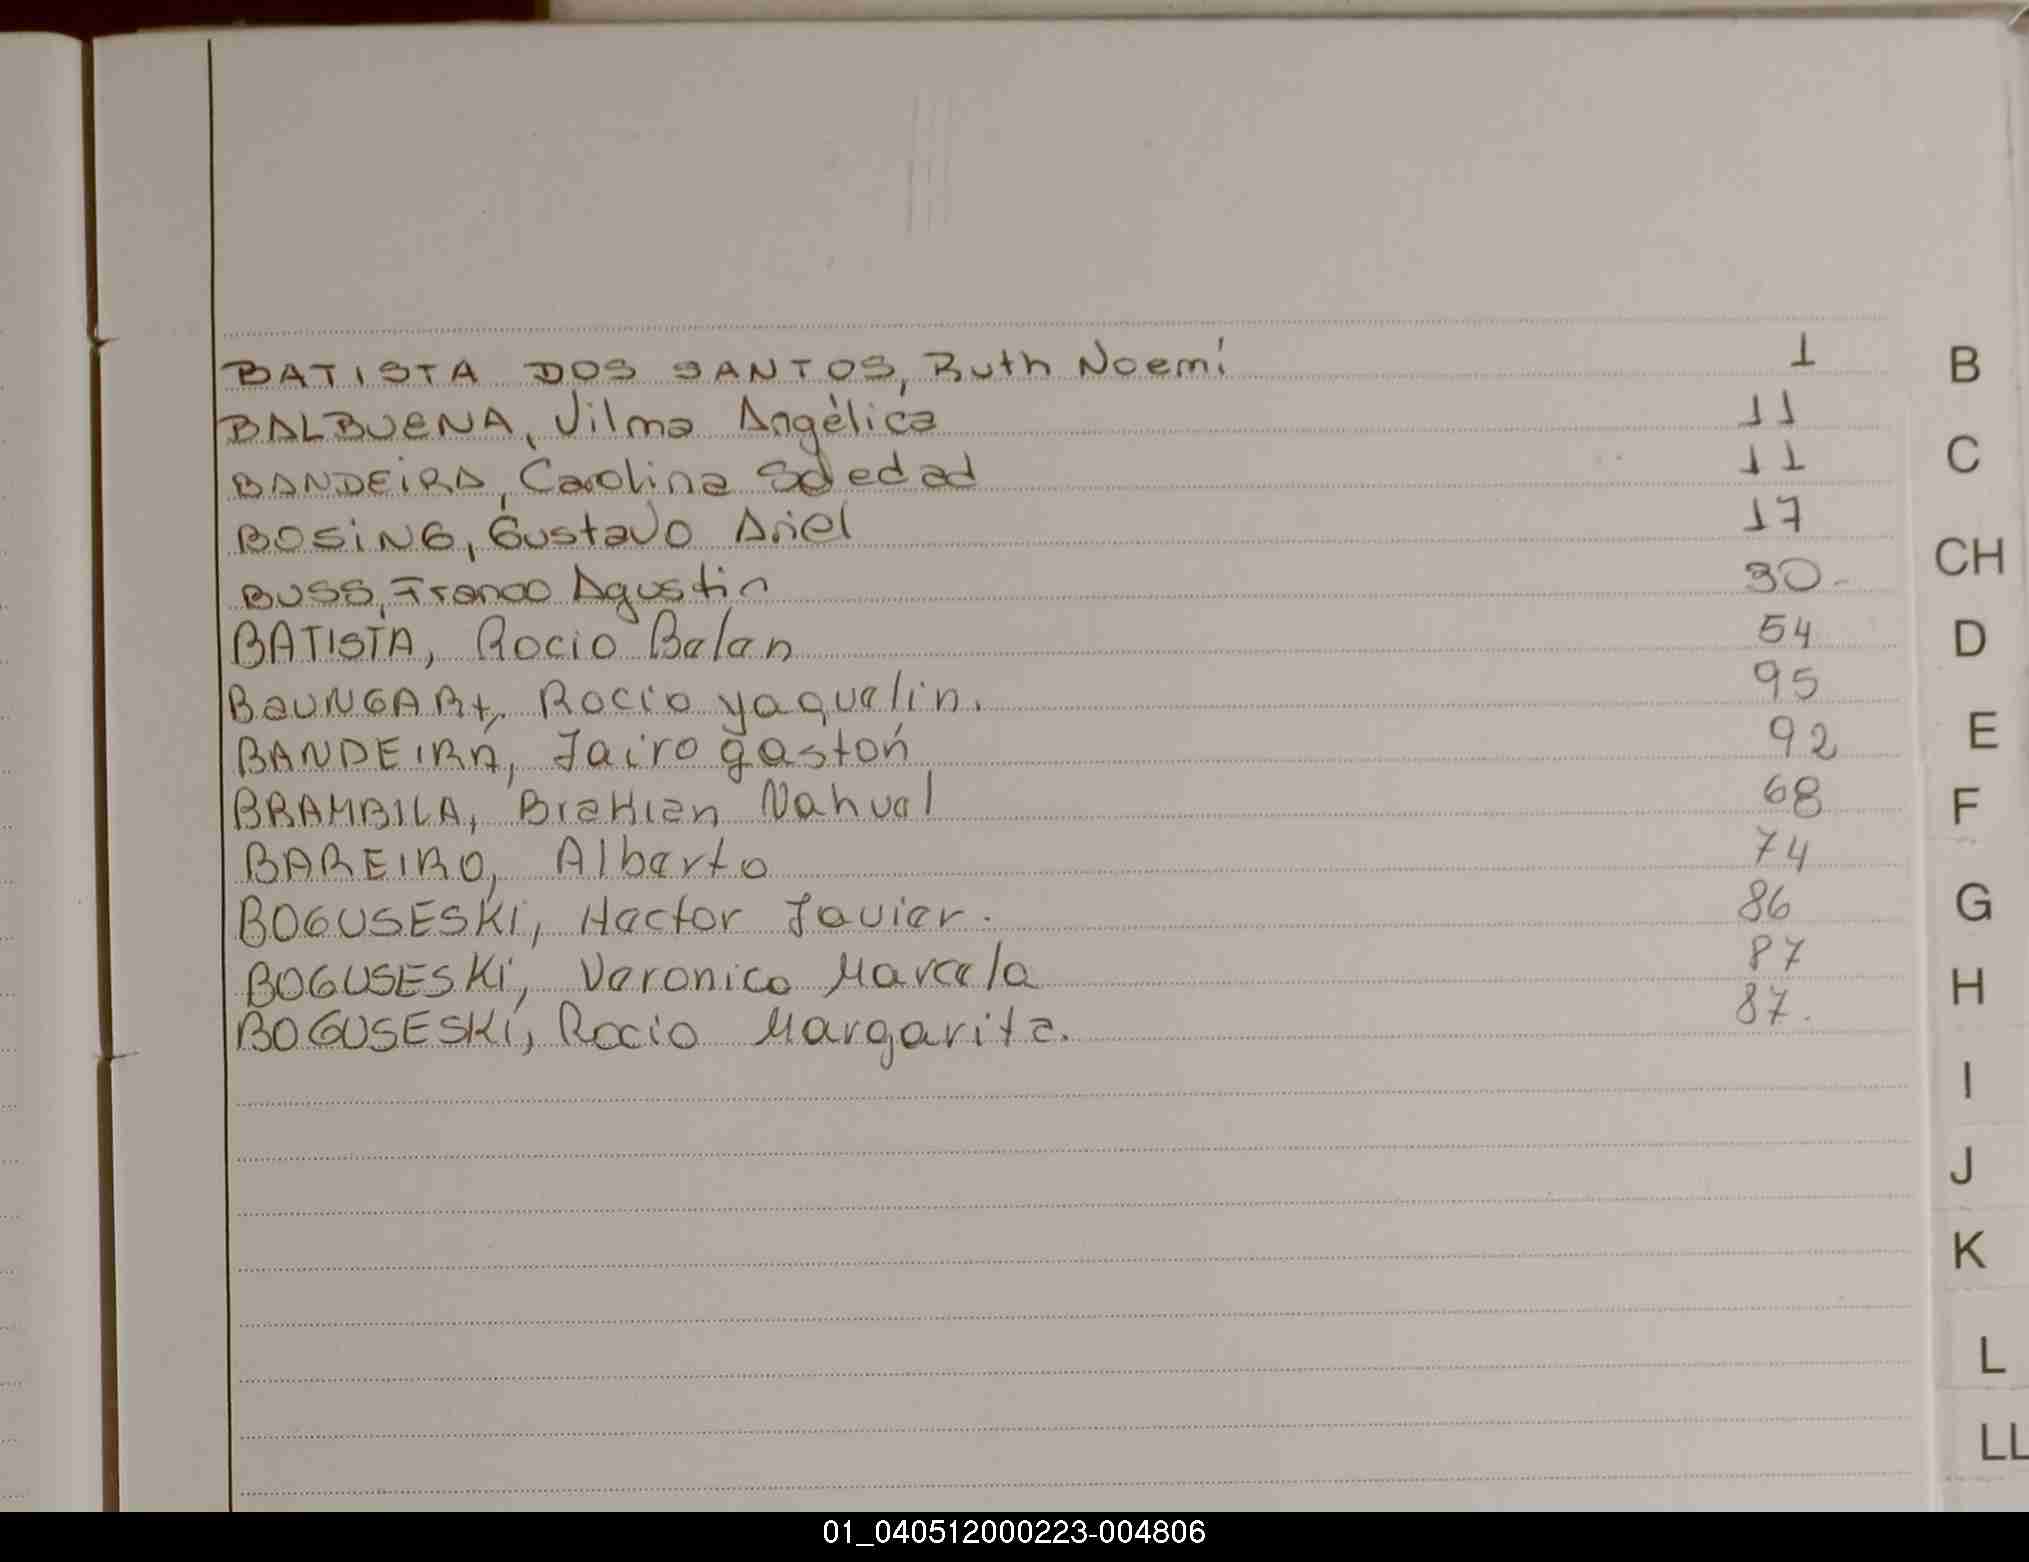 BATISTA DOS SANTOS, Ruth Noemí 1
BALBUENA, Vilma Angélica 11
BANDEIRA, Carolina Soledad 11
BOSiNG, Gustavo Ariel 17
BUSS, Franco Agustin 30-
BATISTA, Rocio Belen 54
BaUNGARt, Rocio yaquelin. 95
BANDEIRA, Jairo gastón 92
BRAMBILA, Brahian Nahuel 68
BAREIRO, Alberto 74
BOGUSESKI, Hector Javier. 86
BOGUSESKI, Veronica Marcela 87
BOGUSESKI, Rocio Margarita. 87.
B
C
CH
D
E
F
G
H
I
J
K
L
LL
01_040512000223-004806